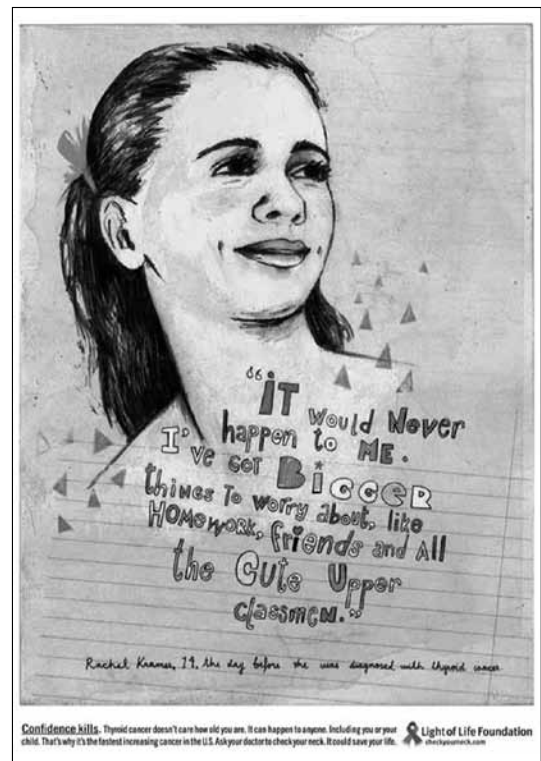 “IT would Never
happen to ME.
I've GOT BiGGER
things To worry about, like
HOMEWORK, friends and All
the Cute Upper
classmen.”
Rachel Kramer, 19, the day before she was diagnosed with thyroid cancer
Confidence kills. Thyroid cancer doesn't care how old you are. It can happen to anyone. Including you or your
child. That's why it's the fastest increasing cancer in the U.S. Ask your doctor to check your neck. It could save your life.
Light of Life Foundation
checkyourneck.com